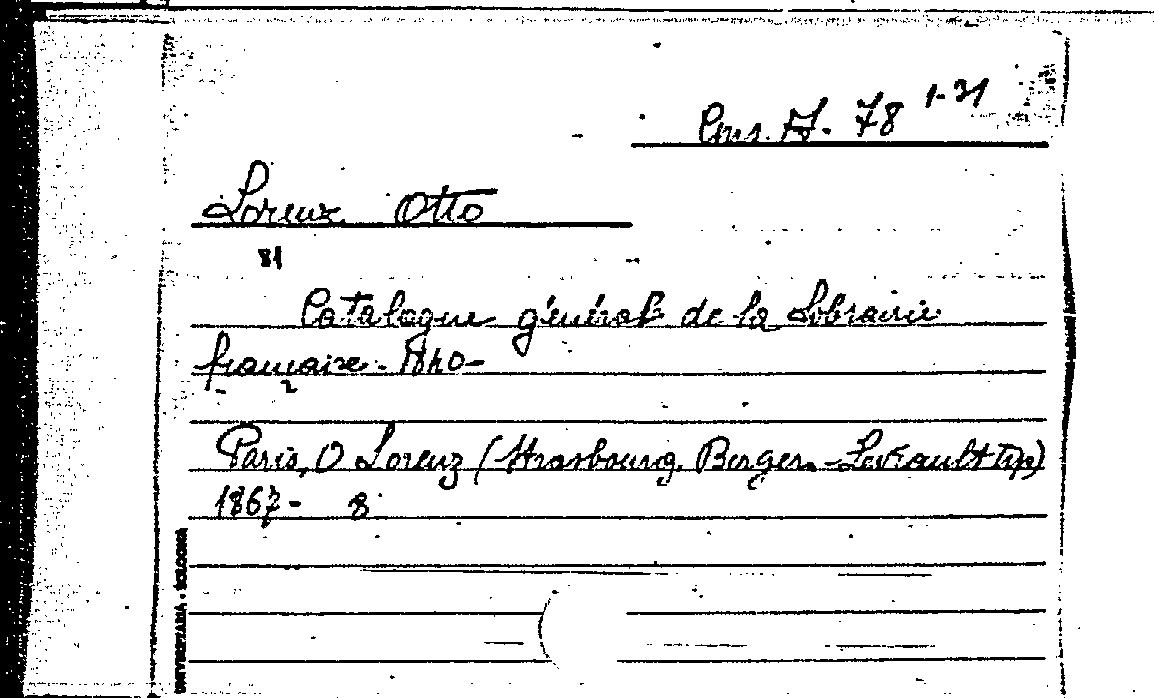 Cons. A. 78 1-31
Lorenz Otto
81
Catalogue général de la Librairie
française. 1840-
Paris, O Lorenz (Strasbourg. Berger-Levrault tip)
1867- 8°
UNIVERSITARIA - BOLOGNA